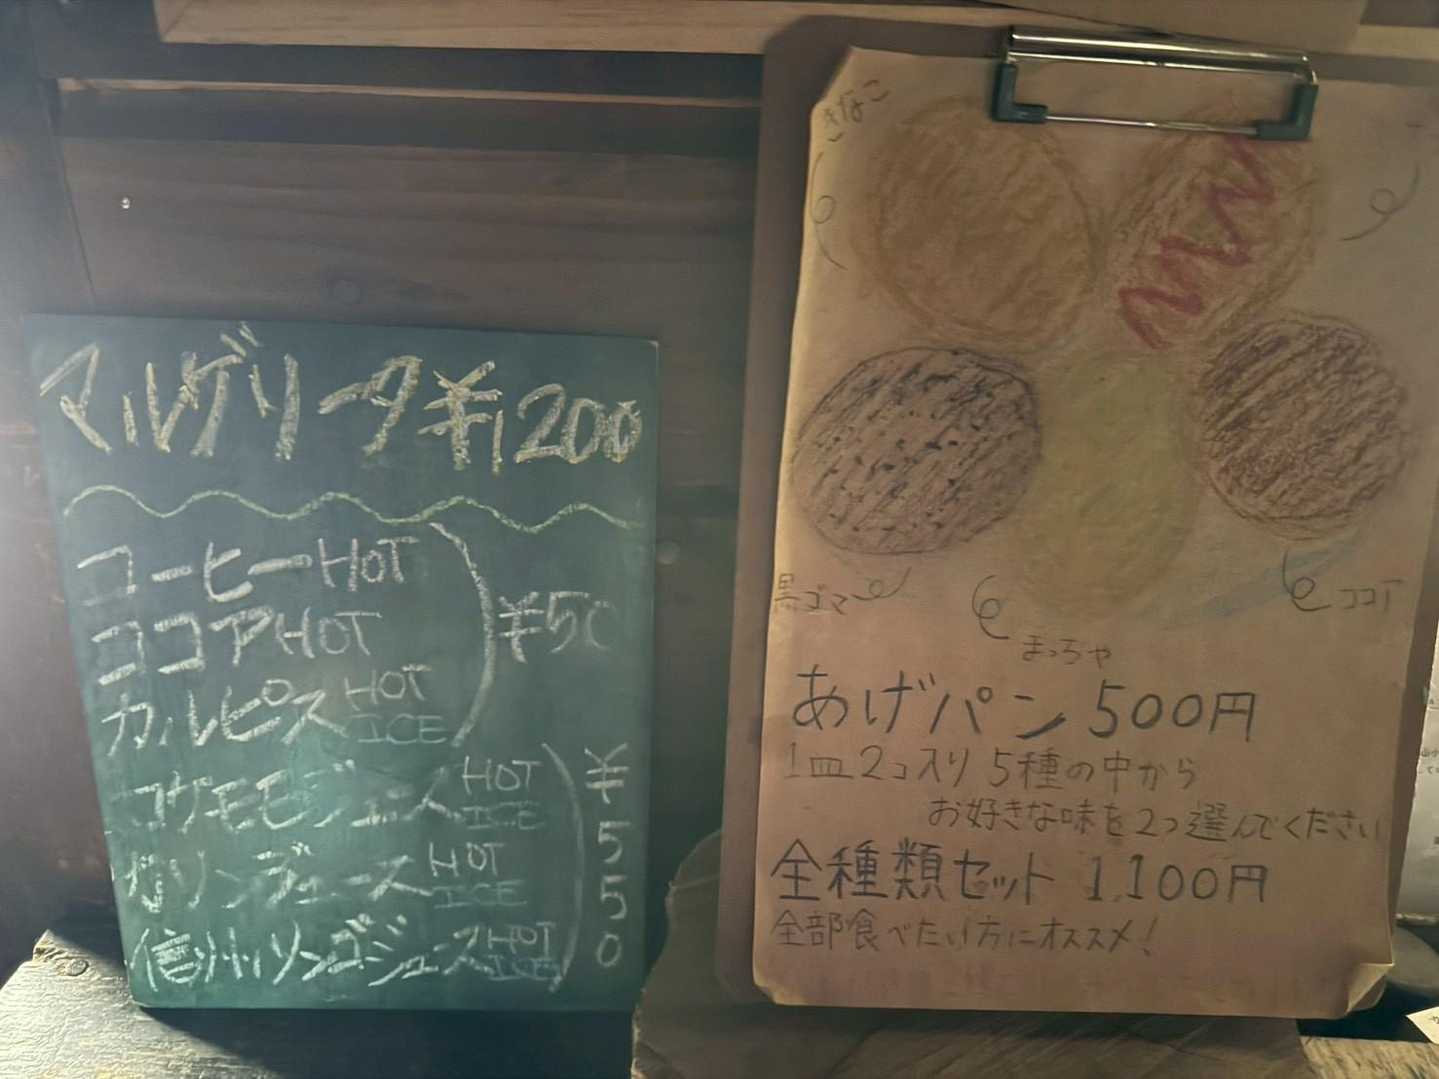 マルゲリータ ¥1,200
コーヒー HOT
ココア HOT
カルピス HOT
ICE
¥50
コケモモジュース HOT
ICE
ジュース HOT
ICE
信州リンゴジュース HOT
ICE
¥550
きなこ
黒ゴマ
まっちゃ
ココア
あげパン 500円
1皿2コ入り 5種の中から
お好きな味を2つ選んでください
全種類セット 1,100円
全部食べたい方にオススメ!